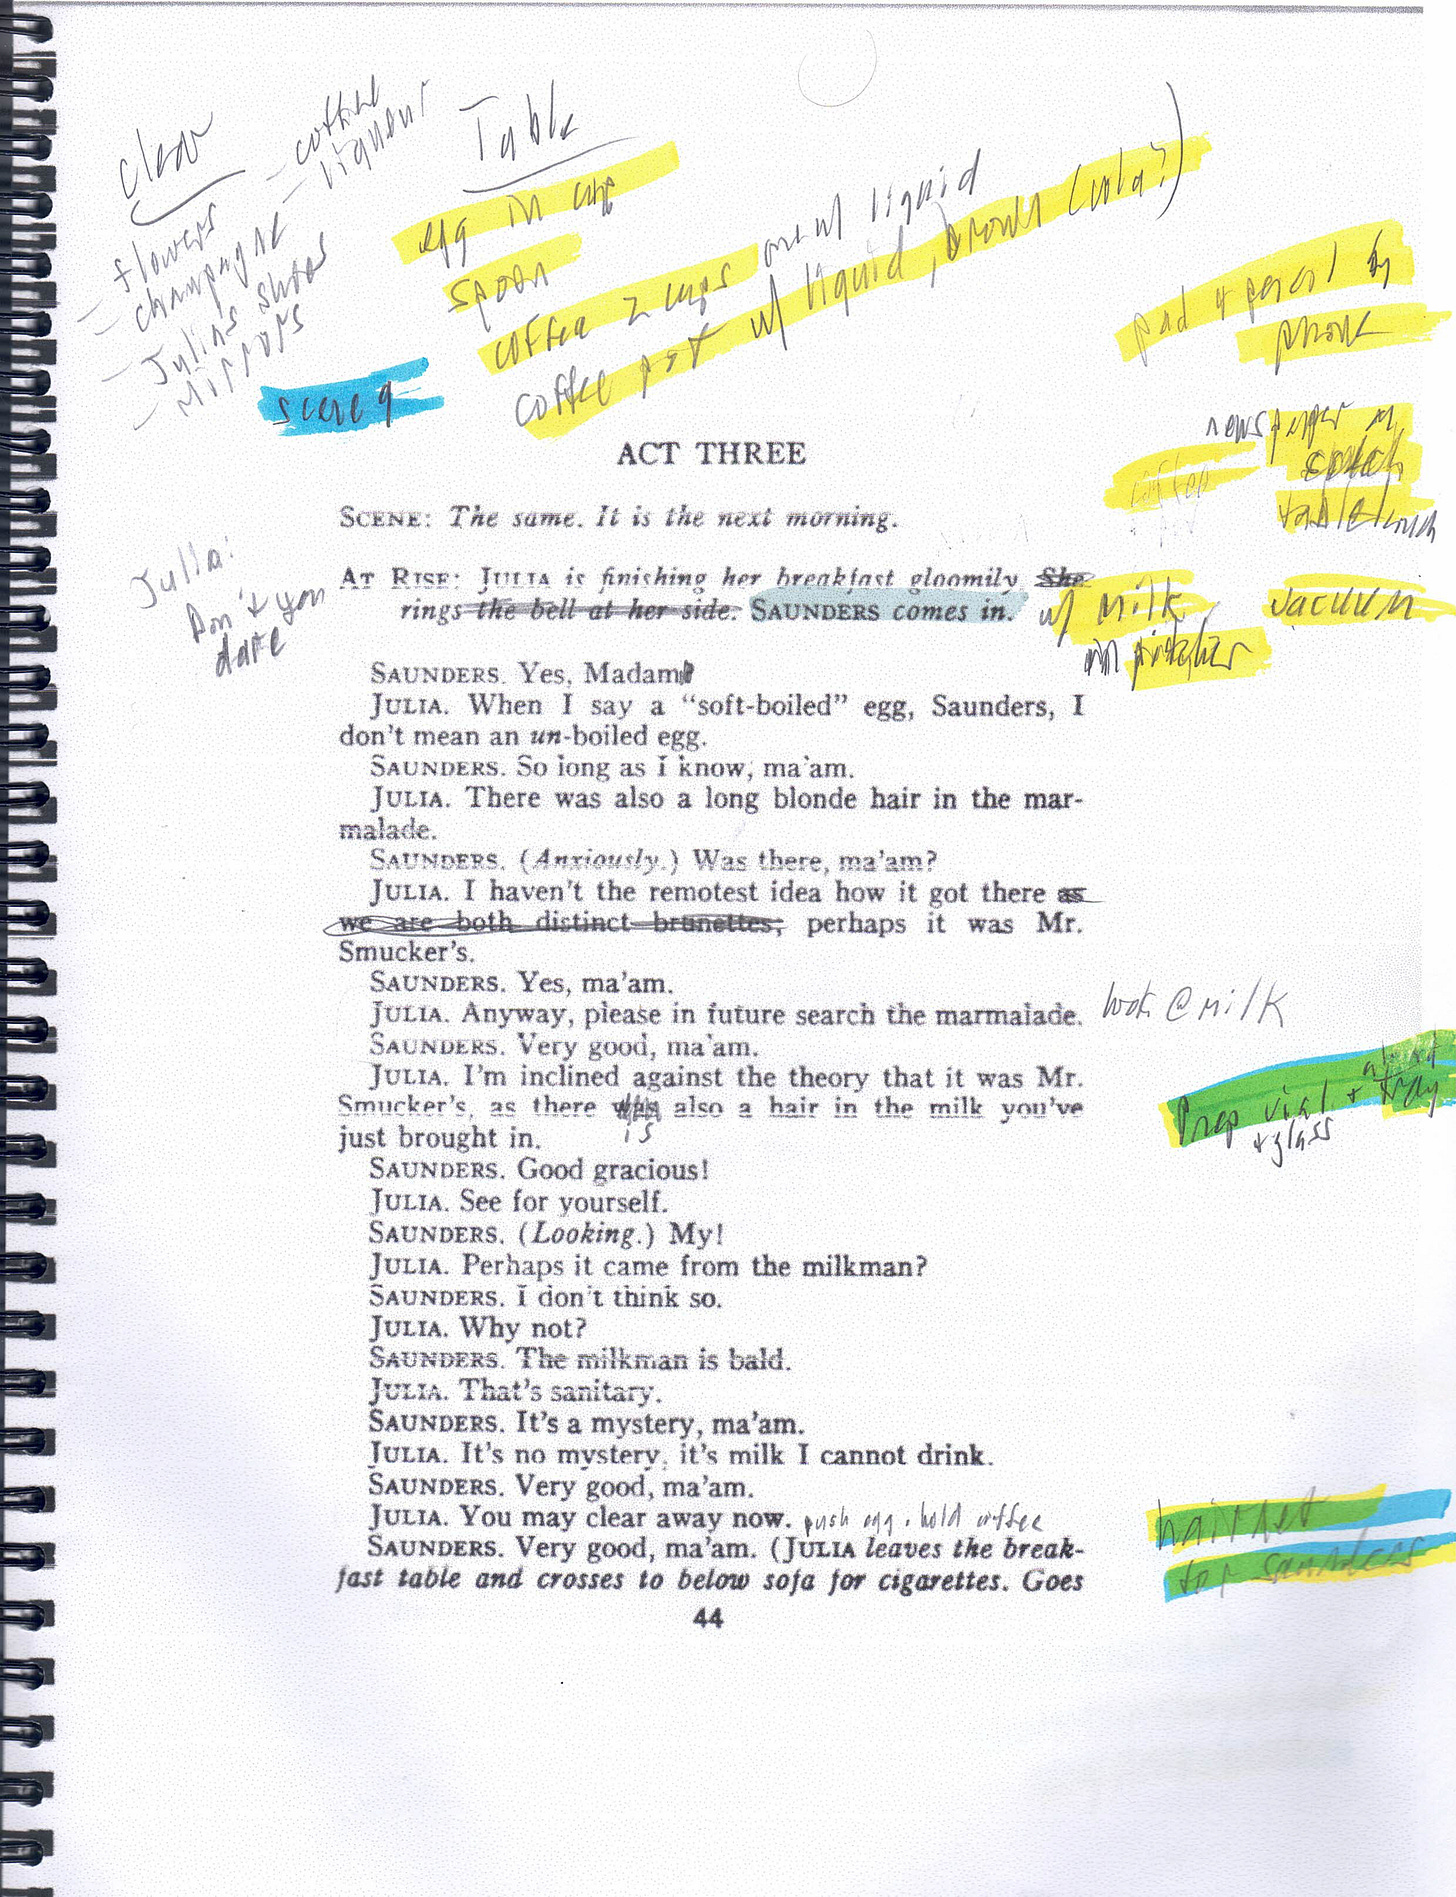 clear
- coffee
- liqueur
- flowers
- champagne
- Julias shoes
- mirrors
Table
egg in cup
spoon
coffee 2 cups w/ liquid
coffee pot w/ liquid, brown (cola?)
pad + pencil by
phone
scene 9
newspaper on
coffee
table
ACT THREE
SCENE: The same. It is the next morning.
Julia:
Don't you
dare
AT RISE: JULIA is finishing her breakfast gloomily. She
rings the bell at her side. SAUNDERS comes in.
w/ milk
in pitcher
vacuum
SAUNDERS. Yes, Madam
JULIA. When I say a “soft-boiled” egg, Saunders, I
don't mean an un-boiled egg.
SAUNDERS. So long as I know, ma'am.
JULIA. There was also a long blonde hair in the mar-
malade.
SAUNDERS. (Anxiously.) Was there, ma'am?
JULIA. I haven't the remotest idea how it got there as
we are both distinct brunettes; perhaps it was Mr.
Smucker's.
SAUNDERS. Yes, ma'am.
JULIA. Anyway, please in future search the marmalade. look @ milk
SAUNDERS. Very good, ma'am.
JULIA. I'm inclined against the theory that it was Mr.
Smucker's, as there was also a hair in the milk you've
is
just brought in.
Prep vial + tray
+ glass
SAUNDERS. Good gracious!
JULIA. See for yourself.
SAUNDERS. (Looking.) My!
JULIA. Perhaps it came from the milkman?
SAUNDERS. I don't think so.
JULIA. Why not?
SAUNDERS. The milkman is bald.
JULIA. That's sanitary.
SAUNDERS. It's a mystery, ma'am.
JULIA. It's no mystery, it's milk I cannot drink.
SAUNDERS. Very good, ma'am.
JULIA. You may clear away now. push egg, hold coffee
SAUNDERS. Very good, ma'am. (JULIA leaves the break-
fast table and crosses to below sofa for cigarettes. Goes
hairnet
for saunders
44